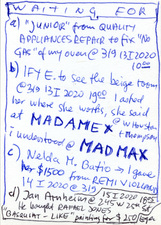 WAITING FOR
a) "JUNIOR" from QUALITY
APPLIANCES REPAIR to fix "NO
GAS" of my oven @ 319 13 I 2020
1000
b) IFYE. to see the beige room
@ 319 13 I 2020 1900 I asked
her where she works, she said
at MADAMEX on Houston
+ Thompson
i understood @ MAD MAX
c) Nelda M. Butio → I gave
her $1500 from REMI
14 I 2020 @ 319
d) Jan Arnheim @ 245 W 25 St
15 I 2020
He bought RAFAEL JONES
"BASQUIAT-LIKE" painting for $250